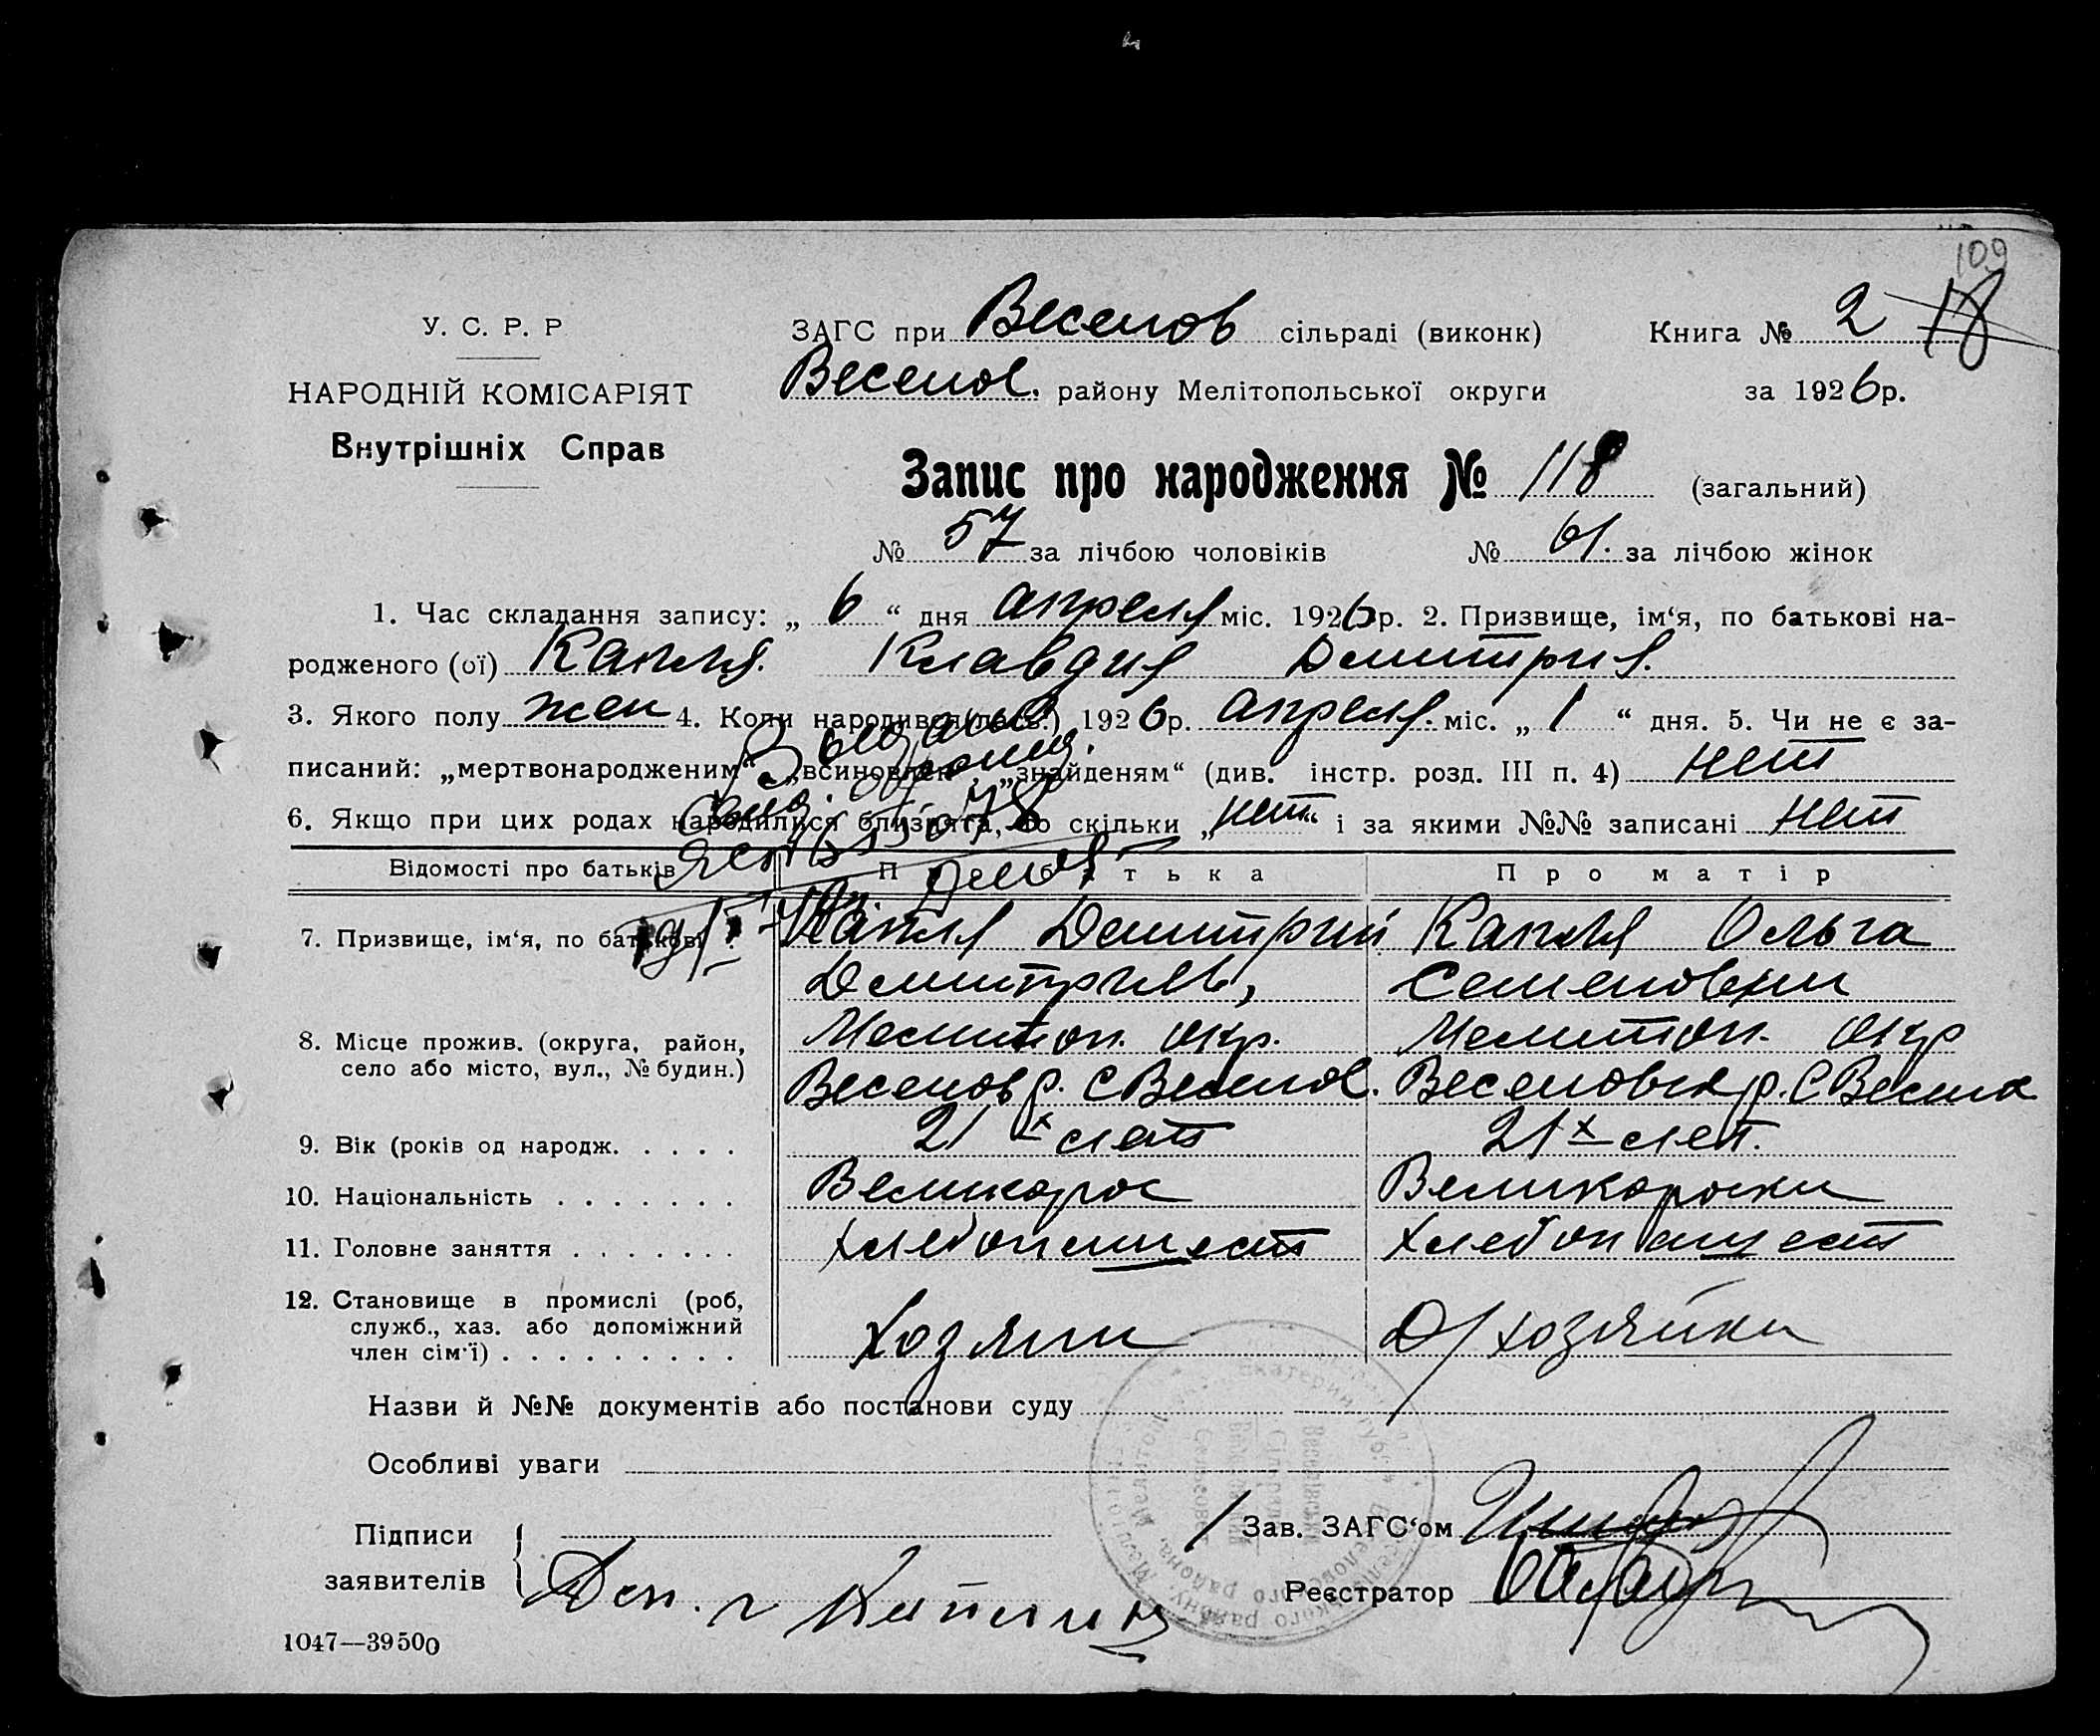 109
У. С. Р. Р
НАРОДНІЙ КОМІСАРІЯТ
Внутрішніх Справ
ЗАГС при Веселов сільраді (виконк) Книга № 2 18
Веселов. району Мелітопольської округи за 1926р.
Запис про народження № 118 (загальний)
№ 57 за лічбою чоловіків № 61. за лічбою жінок
1. Час складання запису: „ 6 “ дня апреля міс. 1926р. 2. Призвище, ім‘я, по батькові на-
родженого (ої) Капля. Клавдия Дмитрия.
3. Якого полу жен 4. Коли народився(лась) 1926р. апреля. міс. „ 1 “ дня. 5. Чи не є за-
писаний: „мертвонародженим“, „всиновлен“, „знайденям“ (див. інстр. розд. III п. 4) нет
6. Якщо при цих родах народилися близнята, то скільки „нет“ і за якими №№ записані нет
Відомості про батьків Про батька Про матір
7. Призвище, ім‘я, по батькові Капля Дмитрий Капля Ольга
Дмитриев, Семеновни
8. Місце прожив. (округа, район, Мелитоп. окр. Мелитоп. окр
село або місто, вул., № будин.) Веселов р. С Веселов. Веселовск р. С Весело
9. Вік (років од народж. . . . . 21 х лет 21 х лет.
10. Національність . . . . . . . Великорос Великороски
11. Головне заняття . . . . . . . хлебопашест хлебопашест
12. Становище в промислі (роб,
служб., хаз. або допоміжний Хозяин Д/хозяйки
член сім‘ї) . . . . . . . . .
Назви й №№ документів або постанови суду
Особливі уваги
Підписи
заявителів
Зав. ЗАГС‘ом
Реєстратор
1047—39500